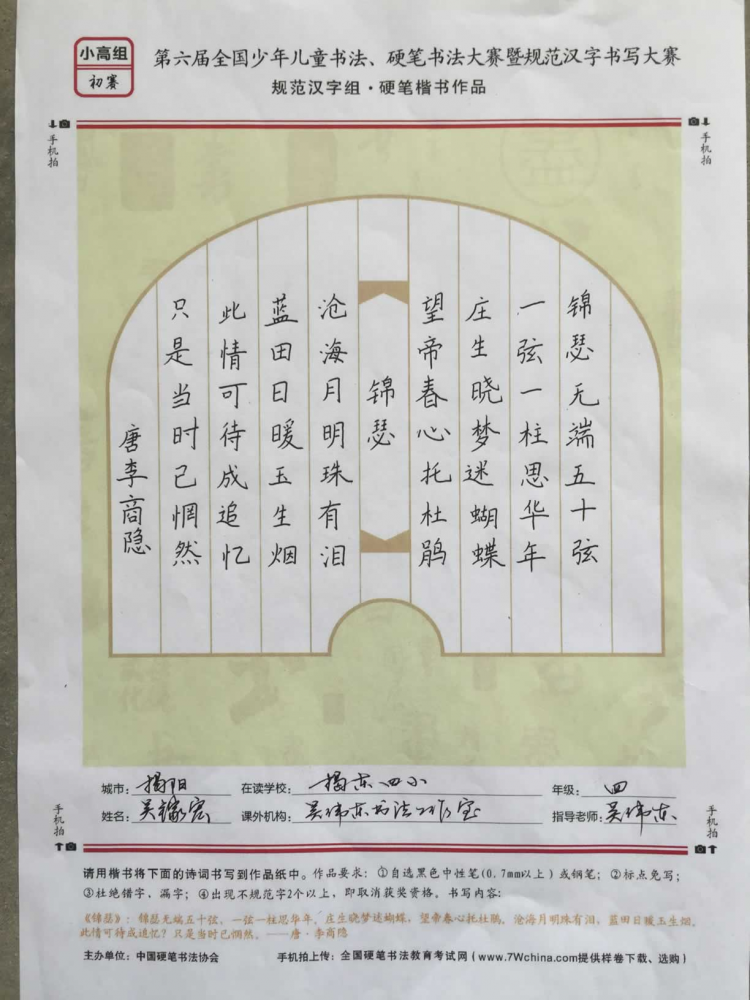 小高组
初赛
第六届全国少年儿童书法、硬笔书法大赛暨规范汉字书写大赛
规范汉字组·硬笔楷书作品
手机拍
手机拍
锦瑟无端五十弦
一弦一柱思华年
庄生晓梦迷蝴蝶
望帝春心托杜鹃
锦瑟
沧海月明珠有泪
蓝田日暖玉生烟
此情可待成追忆
只是当时已惘然
唐李商隐
城市：揭阳 在读学校：揭东四小 年级：四
姓名：吴镓宏 课外机构：吴伟东书法工作室 指导老师：吴伟东
手机拍
手机拍
请用楷书将下面的诗词书写到作品纸中。作品要求：①自选黑色中性笔(0.7mm以上）或钢笔；②标点免写；
③杜绝错字，漏字；④出现不规范字2个以上，即取消获奖资格。书写内容：
《锦瑟》：锦瑟无端五十弦，一弦一柱思华年。庄生晓梦迷蝴蝶，望帝春心托杜鹃。沧海月明珠有泪，蓝田日暖玉生烟。
此情可待成追忆？只是当时已惘然。——唐·李商隐
主办单位：中国硬笔书法协会 手机拍上传：全国硬笔书法教育考试网（www.7Wchina.com提供样卷下载、选购）